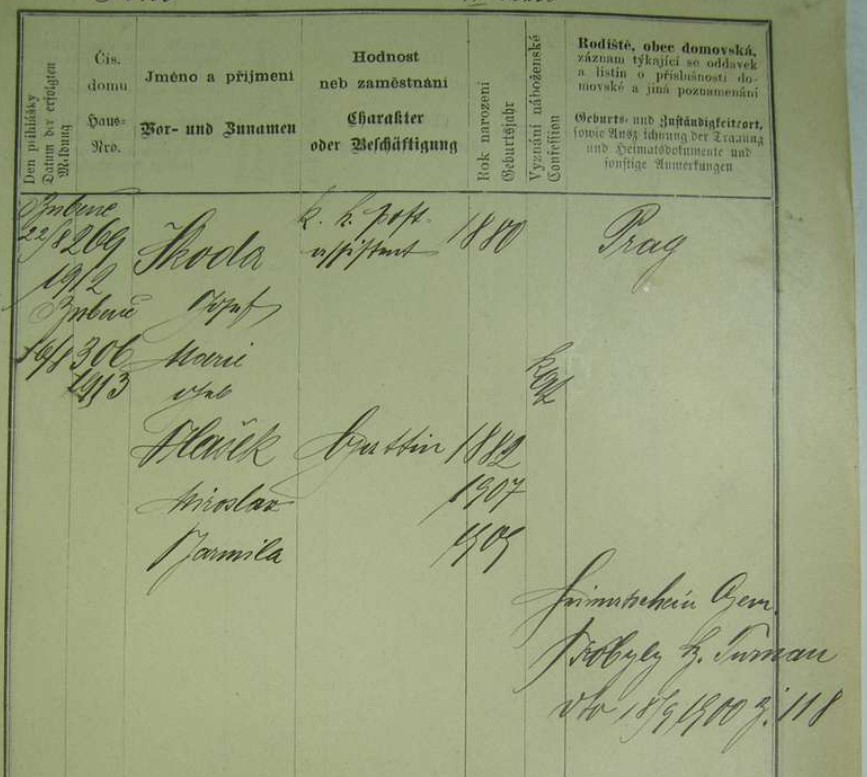 Den přihlášky
Datum der erfolgten
Meldung
Čís.
domu
Haus-
Nro.
Jméno a příjmení
Vor- und Zunamen
Hodnost
neb zaměstnání
Charakter
oder Beschäftigung
Rok narození
Geburtsjahr
Vyznání náboženské
Confession
Rodiště, obec domovská,
záznam týkající se oddavek
a listin o příslušnosti do-
movské a jiná poznamenání
Geburts- und Zuständigkeitsort,
sowie Aufzeichnung der Trauung
und Heimatsdokumente und
sonstige Anmerkungen
Bubenč
22/8 269 Škoda k. k. Post- 1880 Prag
assistent
1912
Bubenč Josef
16/8 306 Marie
1913 geb kath
Hašek Gattin 1882
Miroslav 1907
Jarmila 1909
Heimatschein Gem.
B. Turnau
dto 18/9 1900 z. 118